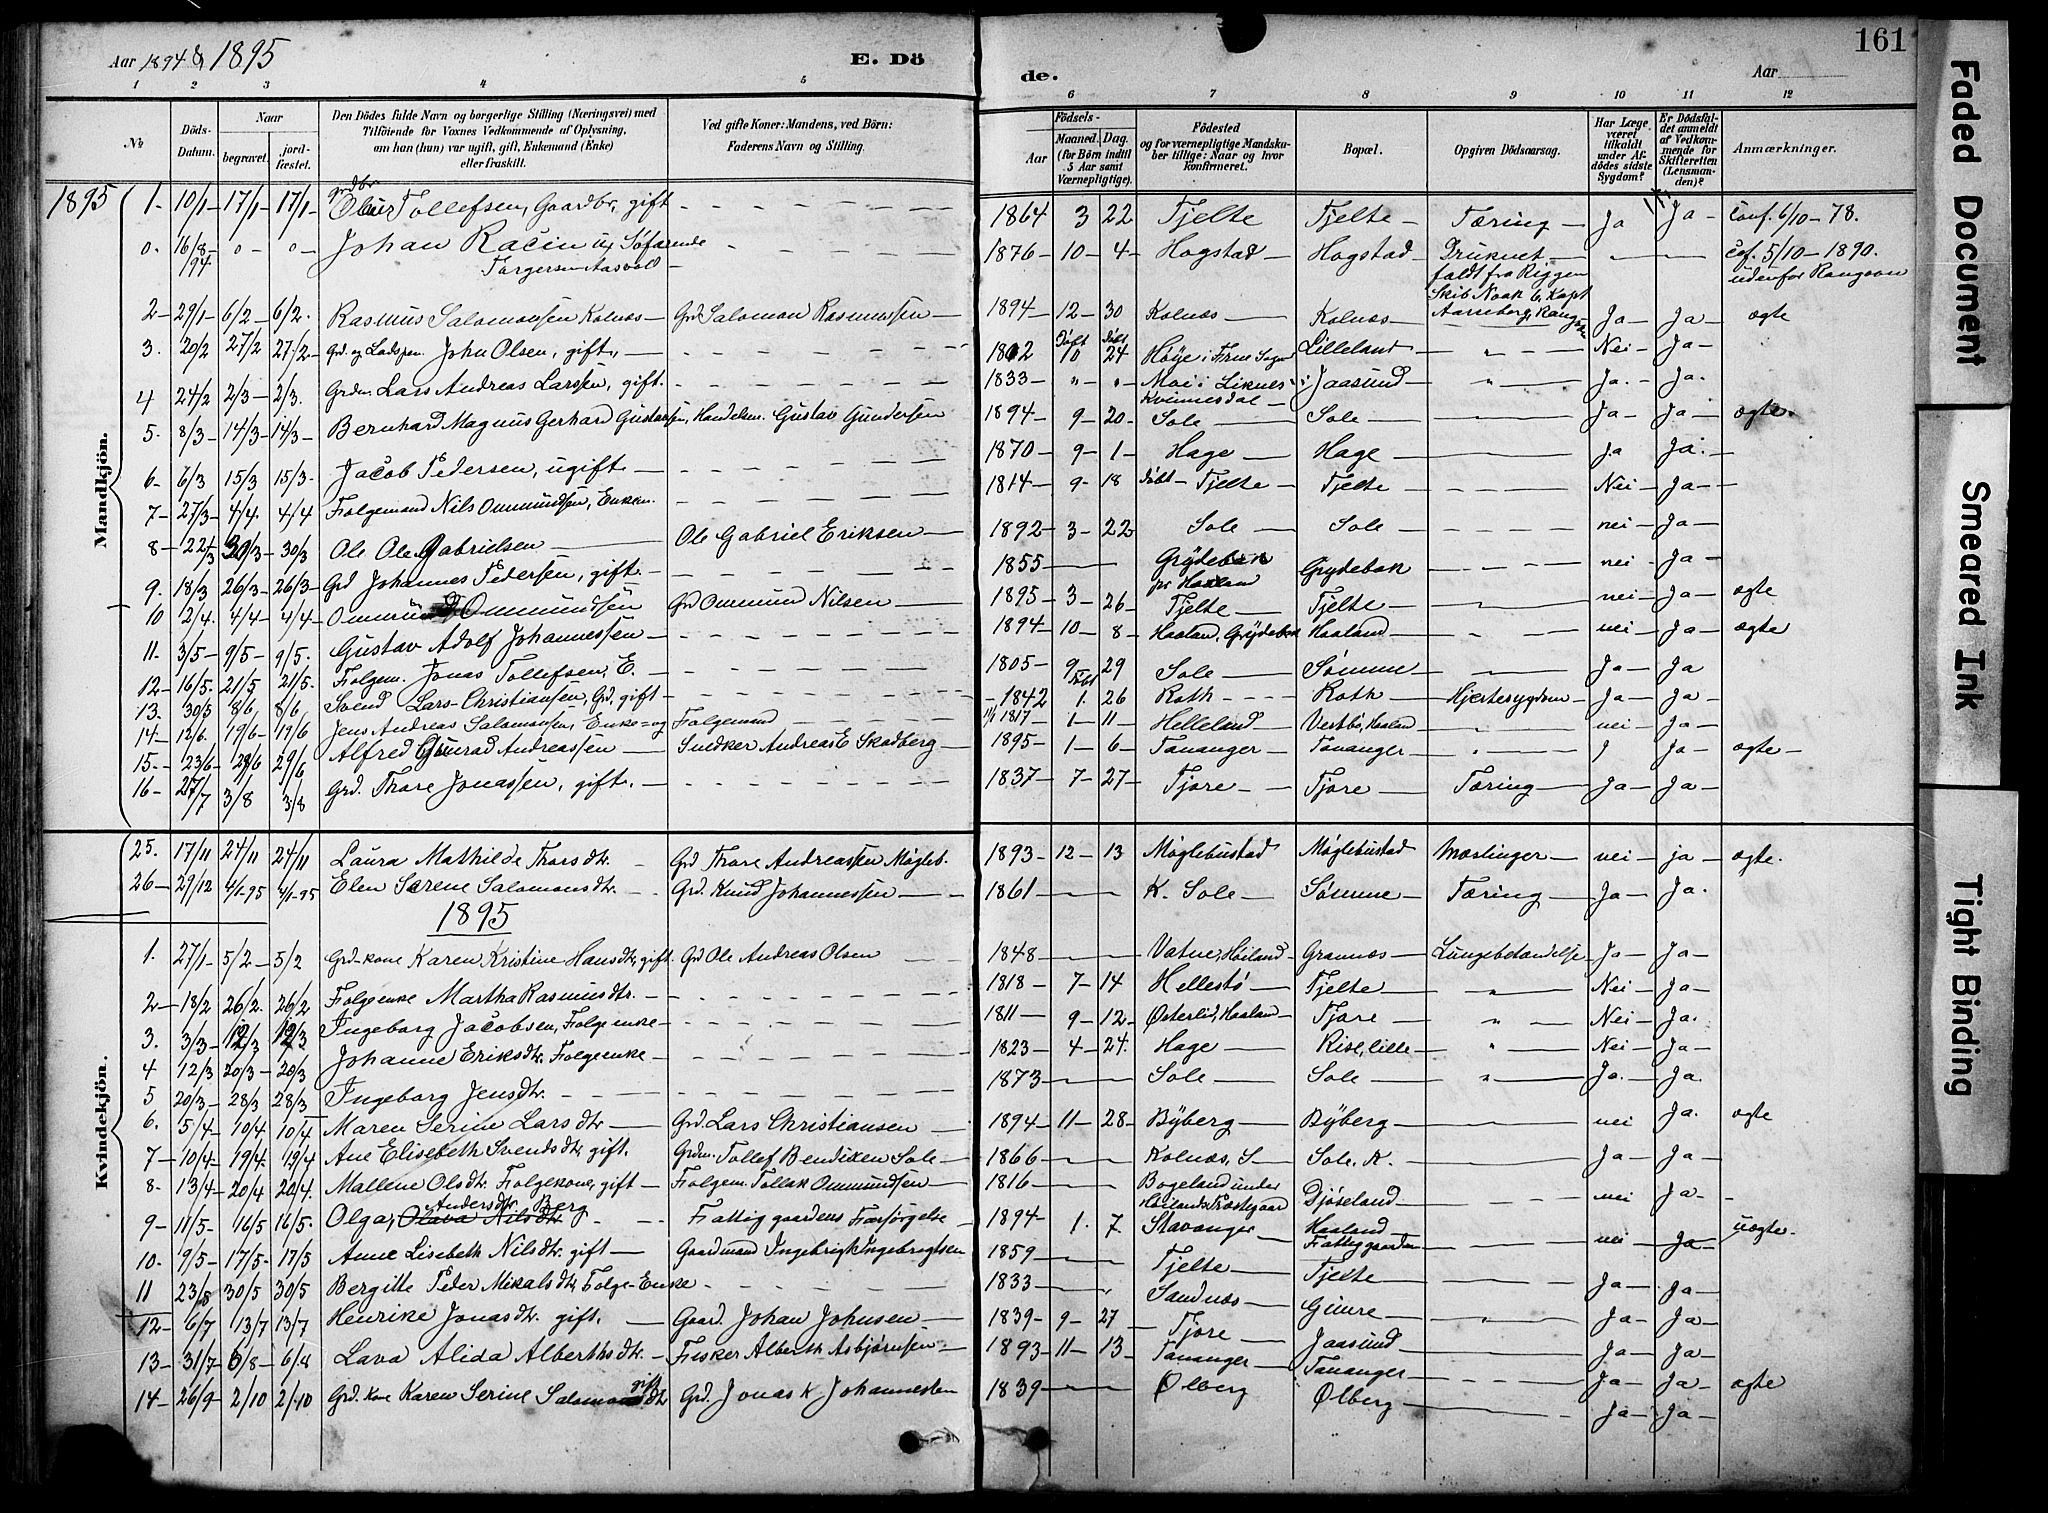 Aar 1894 & 1895
E. Dö
de.
Aar
161
1 2 3 4 5 6 7 8 9 10 11 12
No
Döds-Datum.
Naar
begravet.
jordfæstet.
Den Dödes fulde Navn og borgerlige Stilling (Næringsvei) med
Tilföiende for Voxnes Vedkommende af Oplysning,
om han (hun) var ugift, gift, Enkemand (Enke)
eller fraskilt.
Ved gifte Koner: Mandens, ved Börn:
Faderens Navn og Stilling.
Födsels-
Aar
Maaned. Dag.
(for Börn indtil
5 Aar samt
Værnepligtige).
Födested
og for værnepligtige Mandska-
ber tillige: Naar og hvor
konfirmeret.
Bopæl.
Opgiven Dödsaarsag.
Har Læge
været
tilkaldt
under Af-
dödes sidste
Sygdom?
Er Dödsfal-
det anmeldt
af Vedkom-
mende for
Skifteretten
(Lensman-
den)?
Anmærkninger.
Mandkjön.
1895 1- 10/1 17/1 17/1 Tollefsen, Gaardbr, gift 1864 3 22 Tjelte Tjelte Tæring Ja Ja Conf. 6/10-78.
0. 16/8 94 0 0 Johan Racin ug Søfarende 1876 10 4 Hogstad Hogstad Druknet Cof. 5/10-1890.
Torgersen Aasvoll faldt fra Riggen udenfor Rangoon
Skib Noak C, Kapt
2 29/1 6/2 6/2. Rasmus Salomonsen Kolnæs Grd Saloman Rasmussen 1894 12 30 Kolnæs Kolnæs Ja Ja ægte
3. 20/2 27/2 27/2 Grd. og Ladspen. John Olsen, gift, 1802 Døbt 10 Døbt 24 Høye i Lilleland " Nei Ja
4 24/2 2/3 2/3. Grdm. Lars Andreas Larssen, gift. 1833 " " Moi i Liknes i Jaasund " Ja. Ja.
Kvinnesdal
5. 8/3 14/3 14/3 Bernhard Magnus Gerhard Gustavsen, Handelsm. Gustav Gundersen 1894 9 20 Sole Sole Ja Ja ægte.
6 6/3 15/3 15/3 Jacob Pedersen, ugift. 1870 9 1 Hage Hage Ja Ja.
7 27/3 4/4. 4/4 Folgemand Nils Ommundsen, Enkem. 1814 9 18 døbt Tjelte Tjelte Nei Ja
8 22/3 30/3 30/3 Ole Ole Gabrielsen Ole Gabriel Eriksen 1892 3 22 Sole Sole nei Ja
9. 18/3 26/3 26/3 Grd Johannes Pedersen, gift. 1855 Grydebæk Grydebæk nei Ja
10 2/4. 4/4 4/4 Ommund Ommundsen Grd Ommund Nilsen 1895 3 26 Tjelte Tjelte nei Ja ægte
11. 3/5 9/5 9/5. Gustav Adolf Johannessen 1894 10 8 Haaland, Grydebæk Haaland " nei Ja ægte
12 16/5. 21/5 21/5. Folgem. Jonas Tollefsen, E. 1805 9 29 Sole Sømme Ja Ja
13. 30/5 8/6 8/6 Svend Lars-Christiansen, Grd, gift 1842 1. 26 Roth Roth Hjertesygdom Ja Ja
14 12/6. 19/6 19/6 Jens Andreas Salamonsen, Enke og Folgemand 1817 1 11 Helleland Vestbø, Haaland " nei Ja
15 23/6 28/6 29/6 Alfred Andreassen Snedker Andreas E Skadberg 1895 1 6 Tananger Tananger " J Ja ægte
16 27/7 3/8 3/8 Grd. Thore Jonassen, gift. 1837 7 27 Tjore Tjore Tæring Ja Ja
Kvindekjön.
25. 17/11 24/11 24/11 Laura Mathilde Thorsdtr. Grd Thore Andreassen Møgleb. 1893 12 13 Møglebustad Møglebustad Mæslinger nei ja ægte.
26 29/12 4/1-95 4/1-95 Elen Serene Salomonsdtr. Grd. Knud Johannessen 1861 K. Sole Sømme Tæring Ja Ja.
1895
1. 27/1 5/2 5/2 Grd-kone Karen Kristine Hansdtr, gift Grd Ole Andreas Olsen 1848 Vatne, Høiland Grannæs Lungebetændelse Ja Ja
2 18/2 26/2. 26/2 Folgeenke Martha Rasmusdtr. 1818 7 14 Hellestø Tjelte " Nei Ja
3. 3/3 12/3 12/3 Ingeborg Jacobsen, Folgeenke 1811 9 12 Østerlid, Haaland Tjore " Nei Ja.
4 12/3 20/3 20/3 Johanne Eriksdtr. Folgeenke 1823 4 24. Hage Rise, lille " Nei Ja
5 20/3 28/3 28/3 Ingeborg Jensdtr. 1873 Sole Sole " Ja. Ja.
6. 5/4 10/4 10/4 Maren Serine Larsdtr Grd. Lars Christiansen 1894 11 28 Byberg Byberg nei Ja. ægte
7 10/4 19/4. 19/4 Ane Elisebeth Svendsdtr, gift. Grdm. Tollef Bendixen Sole 1866 Kolnæs, S Sole. K. Ja Ja
8. 13/4 20/4 20/4. Mallene Olsdtr. Folgekone, gift Folgem. Tollak Ommundsen 1816 Bogeland under Djøseland nei Ja
Høilands Præstegaard
9 11/5 16/5 16/5. Olga, Olava Nilsdtr. Andersdtr. Berg Fattiggaardens Forsørgelse 1894 1. 7. Stavanger Haaland Fattiggaarden nei Ja uægte.
10. 9/5 17/5. 17/5 Anne Lisebeth Nilsdtr. gift Gaardmand Ingebrigt Ingebregtsen 1859 Tjelte Tjelte
11 23/5 30/5 30/5 Bergitte Peder Mikalsdtr. Folge-Enke 1833 Sandnæs Gimre Ja Ja
12 6/7 13/7 13/7 Henrike Jonasdtr. gift. Gaard. Johan Johnsen 1839 9 27 Tjore Jaasund " Ja Ja
13 31/7 6/8 6/8 Lava Alida Alberthsdtr. Fisker Alberth Asbjørnsen 1893 11 13 Tananger Tananger Ja Ja ægte
14 26/9 2/10 2/10 Grd. kone Karen Serine Salomonsdtr gift Grd. Jonas K Johannessen 1839 Ølberg Ølberg Ja Ja
Faded Document
Smeared Ink
Tight Binding